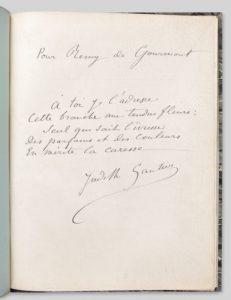 Pour Remy de Gourmont
À toi je l'adresse
Cette branche aux tendres fleurs:
Seul qui sait l'ivresse
Des parfums et des couleurs
En mérite la caresse
Judith Gautier